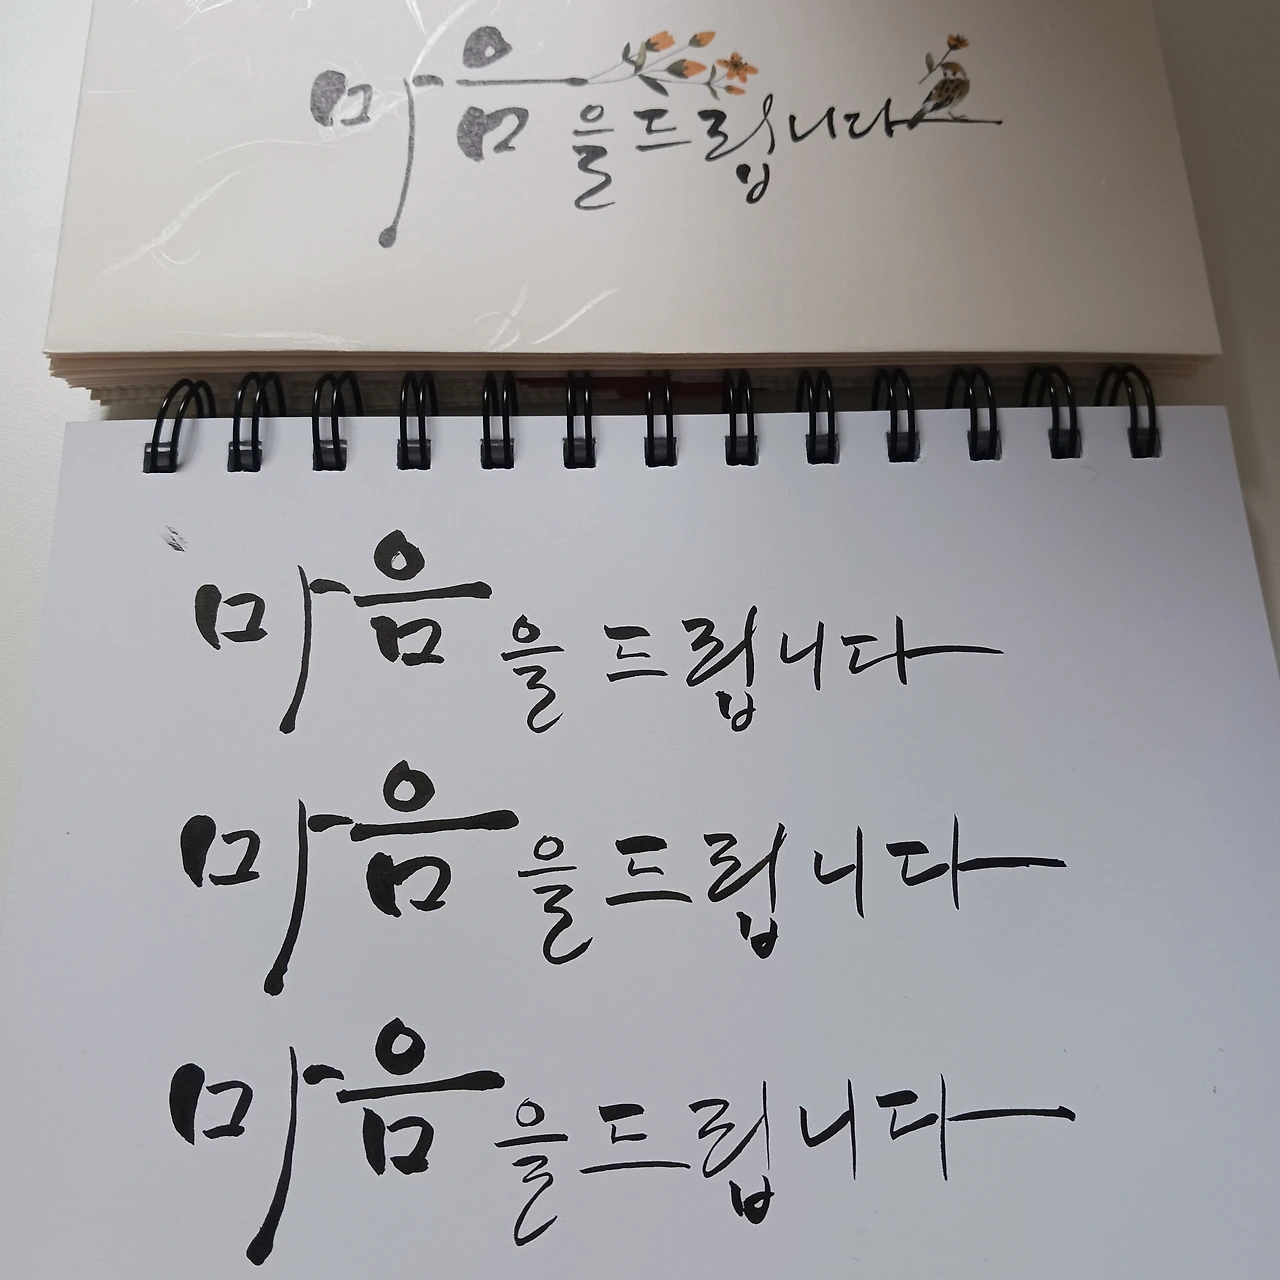 마음을 드립니다
마음을 드립니다
마음을 드립니다
마음을 드립니다